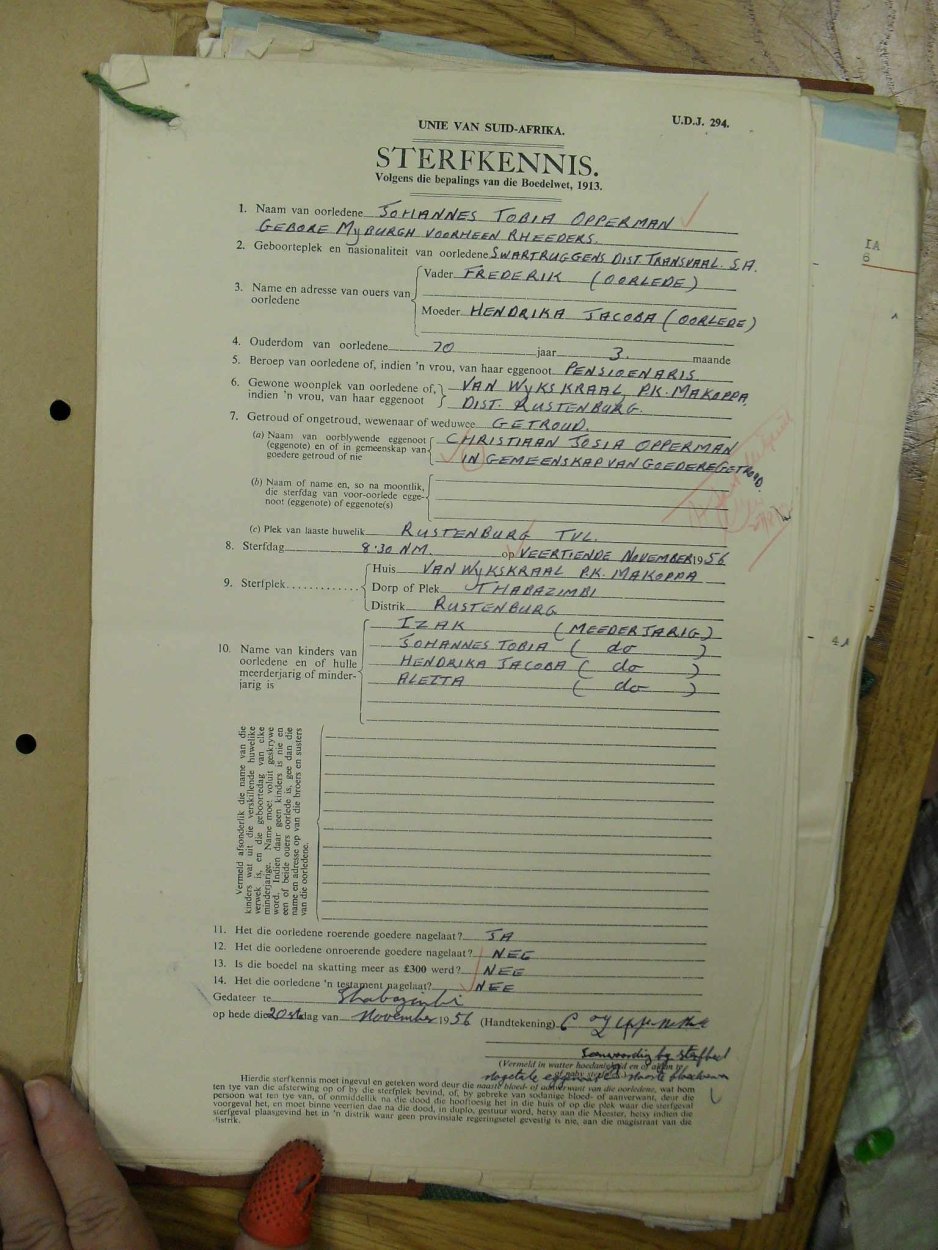 UNIE VAN SUID-AFRIKA.
U.D.J. 294.
STERFKENNIS.
Volgens die bepalings van die Boedelwet, 1913.
1. Naam van oorledene JOHANNES TOBIA OPPERMAN
GEBORE MyBURGH VOORHEEN RHEEDERS.
2. Geboorteplek en nasionaliteit van oorledene SWARTRUGGENS DIST. TRANSVAAL. S.A.
3. Name en adresse van ouers van oorledene
Vader FREDERIK (OORLEDE)
Moeder HENDRIKA JACOBA (OORLEDE)
4. Ouderdom van oorledene 70 jaar 3. maande
5. Beroep van oorledene of, indien 'n vrou, van haar eggenoot PENSIOENARIS
6. Gewone woonplek van oorledene of, VAN WyKSKRAAL, P.K. MAKOPPA,
indien 'n vrou, van haar eggenoot DIST. RUSTENBURG.
7. Getroud of ongetroud, wewenaar of weduwee GETROUD.
(a) Naam van oorblywende eggenoot CHRISTIAAN JOSIA OPPERMAN
(eggenote) en of in gemeenskap van
goedere getroud of nie IN GEMEENSKAP VAN GOEDERE GETROUD.
(b) Naam of name en, so na moontlik,
die sterfdag van voor-oorlede egge-
noot (eggenote) of eggenote(s)
(c) Plek van laaste huwelik RUSTENBURG TVL.
8. Sterfdag 8.30 NM. op VEERTIENDE NOVEMBER 1956
9. Sterfplek
Huis VAN WyKSKRAAL P.K. MAKOPPA
Dorp of Plek THABAZIMBI
Distrik RUSTENBURG
10. Name van kinders van
oorledene en of hulle
meerderjarig of minder-
jarig is
IZAK (MEEDERJARIG)
JOHANNES TOBIA ( do )
HENDRIKA JACOBA ( do )
ALETTA ( do )
Vermeld afsonderlik die name van die
kinders wat uit die verskillende huwelike
verwek is, en die geboortedag van elke
minderjarige. Name moet voluit geskrywe
word. Indien daar geen kinders is nie en
een of beide ouers oorlede is, gee dan die
name en adresse op van die broers en susters
van die oorledene.
11. Het die oorledene roerende goedere nagelaat? JA
12. Het die oorledene onroerende goedere nagelaat? NEE
13. Is die boedel na skatting meer as £300 werd? NEE
14. Het die oorledene 'n testament nagelaat? NEE
Gedateer te Thabazimbi
op hede die 20ste dag van November 1956 (Handtekening)
(Vermeld in watter hoedanigheid en of
Hierdie sterfkennis moet ingevul en geteken word deur die naaste bloed- of aanverwant van die oorledene, wat hom
ten tye van die afsterwing op of by die sterfplek bevind, of, by gebreke van sodanige bloed- of aanverwant, deur die
persoon wat ten tye van, of onmiddellik na die dood die hooftoesig het in die huis of op die plek waar die sterfgeval
voorgeval het, en moet binne veertien dae na die dood, in duplo, gestuur word, hetsy aan die Meester, hetsy indien die
sterfgeval plaasgevind het in 'n distrik waar geen provinsiale regeringsetel gevestig is nie, aan die magistraat van die
distrik.
IA
6
4